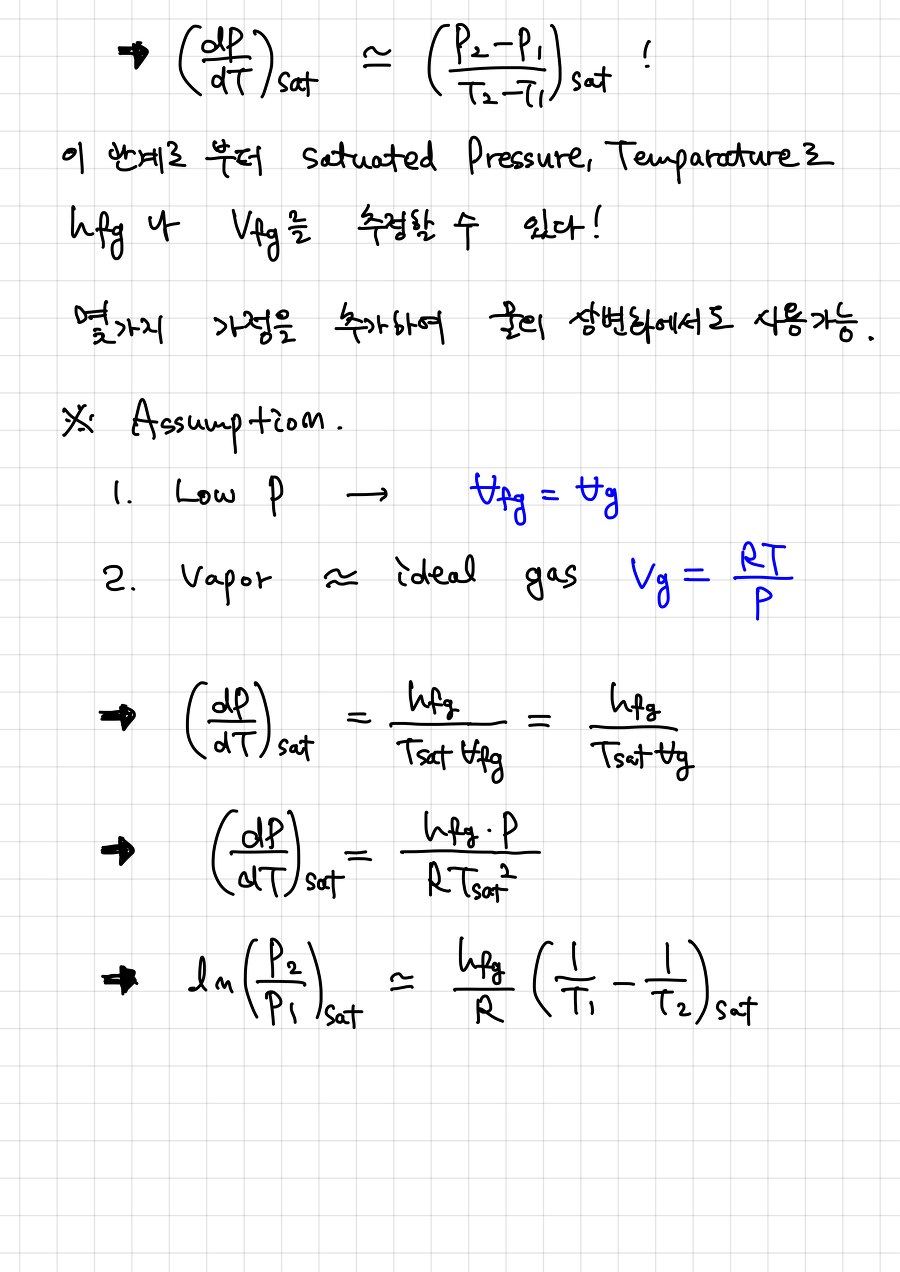 → (dP/dT)sat ≃ (P₂-P₁/T₂-T₁)sat !
이 관계로 부터 satuated Pressure, Temparature로
hfg 나 Vfg를 추정할 수 있다!
몇가지 가정을 추가하여 물의 상변화에서도 사용가능.
※ Assumption.
1. Low P → Vfg = Vg
2. Vapor ≈ ideal gas Vg = RT/P
→ (dP/dT)sat = hfg/Tsat Vfg = hfg/Tsat Vg
→ (dP/dT)sat = hfg·P/RTsat²
→ ln(P₂/P₁)sat ≃ hfg/R (1/T₁ - 1/T₂)sat